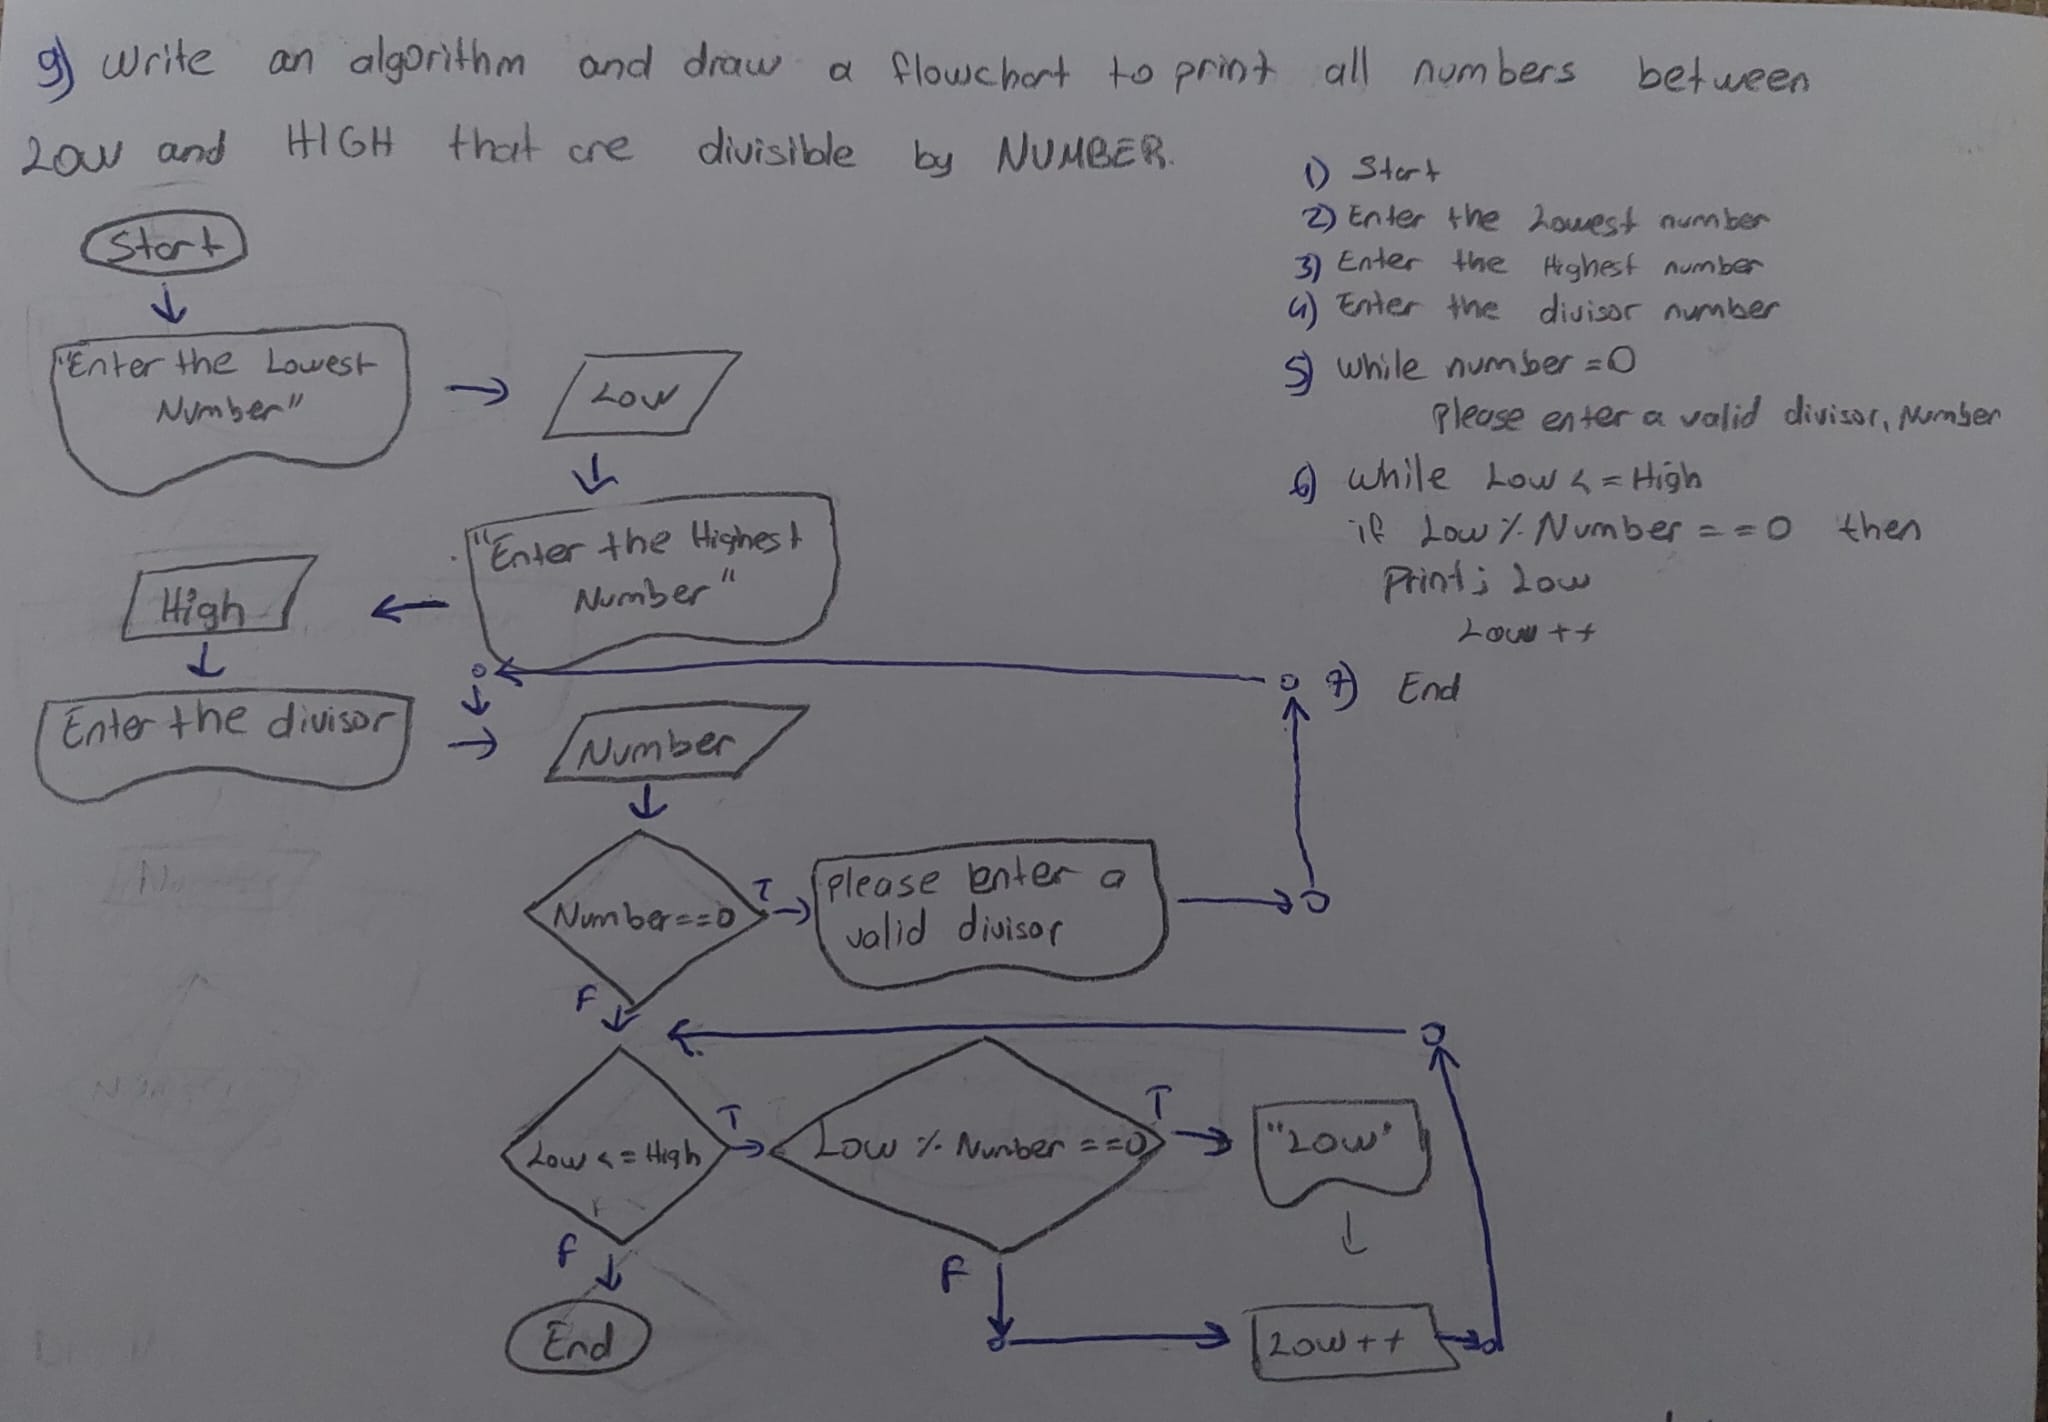 g) Write an algorithm and draw a flowchart to print all numbers between
Low and HIGH that are divisible by NUMBER.
1) Start
2) Enter the Lowest number
3) Enter the Highest number
4) Enter the divisor number
5) while number =0
please enter a valid divisor, Number
6) while Low <= High
if Low % Number ==0 then
Print; Low
Low ++
7) End
Start
"Enter the Lowest
Number"
Low
"Enter the Highest
Number"
High
Enter the divisor
Number
Number==0
T
please enter a
valid divisor
F
Low <= High
T
Low % Number ==0
T
"Low"
F
F
Low++
End